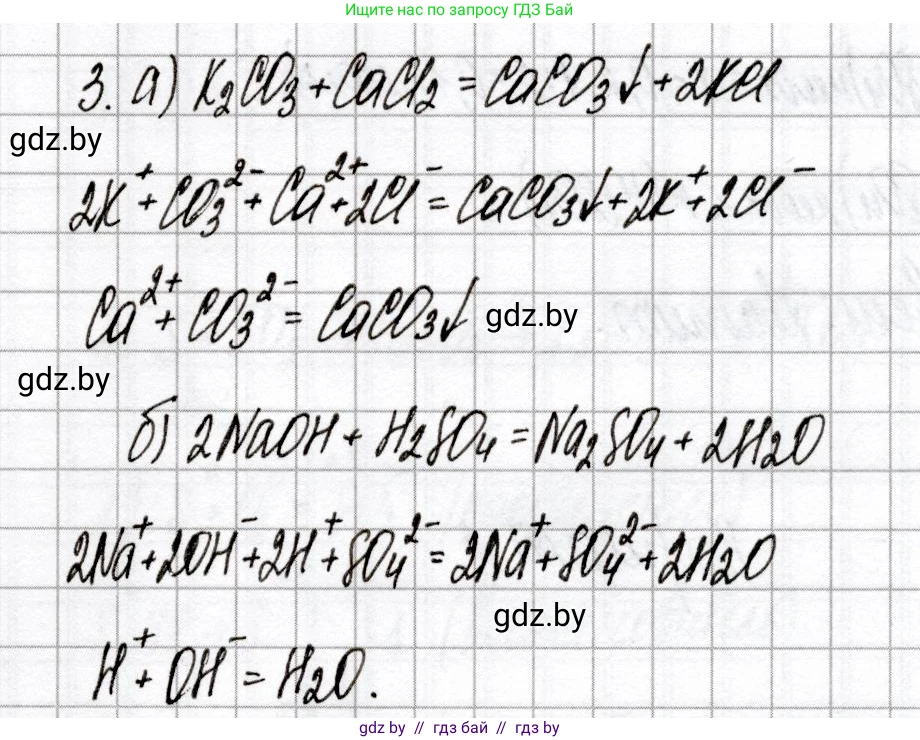 Ищите нас по запросу ГДЗ Бай
3. а) K₂CO₃ + CaCl₂ = CaCO₃↓ + 2KCl
gdz.by
2K⁺ + CO₃²⁻ + Ca²⁺ + 2Cl⁻ = CaCO₃↓ + 2K⁺ + 2Cl⁻
Ca²⁺ + CO₃²⁻ = CaCO₃↓ gdz.by
gdz.by
б) 2NaOH + H₂SO₄ = Na₂SO₄ + 2H₂O
2Na⁺ + 2OH⁻ + 2H⁺ + SO₄²⁻ = 2Na⁺ + SO₄²⁻ + 2H₂O
gdz.by
H⁺ + OH⁻ = H₂O.
gdz by // гдз бай // gdz by